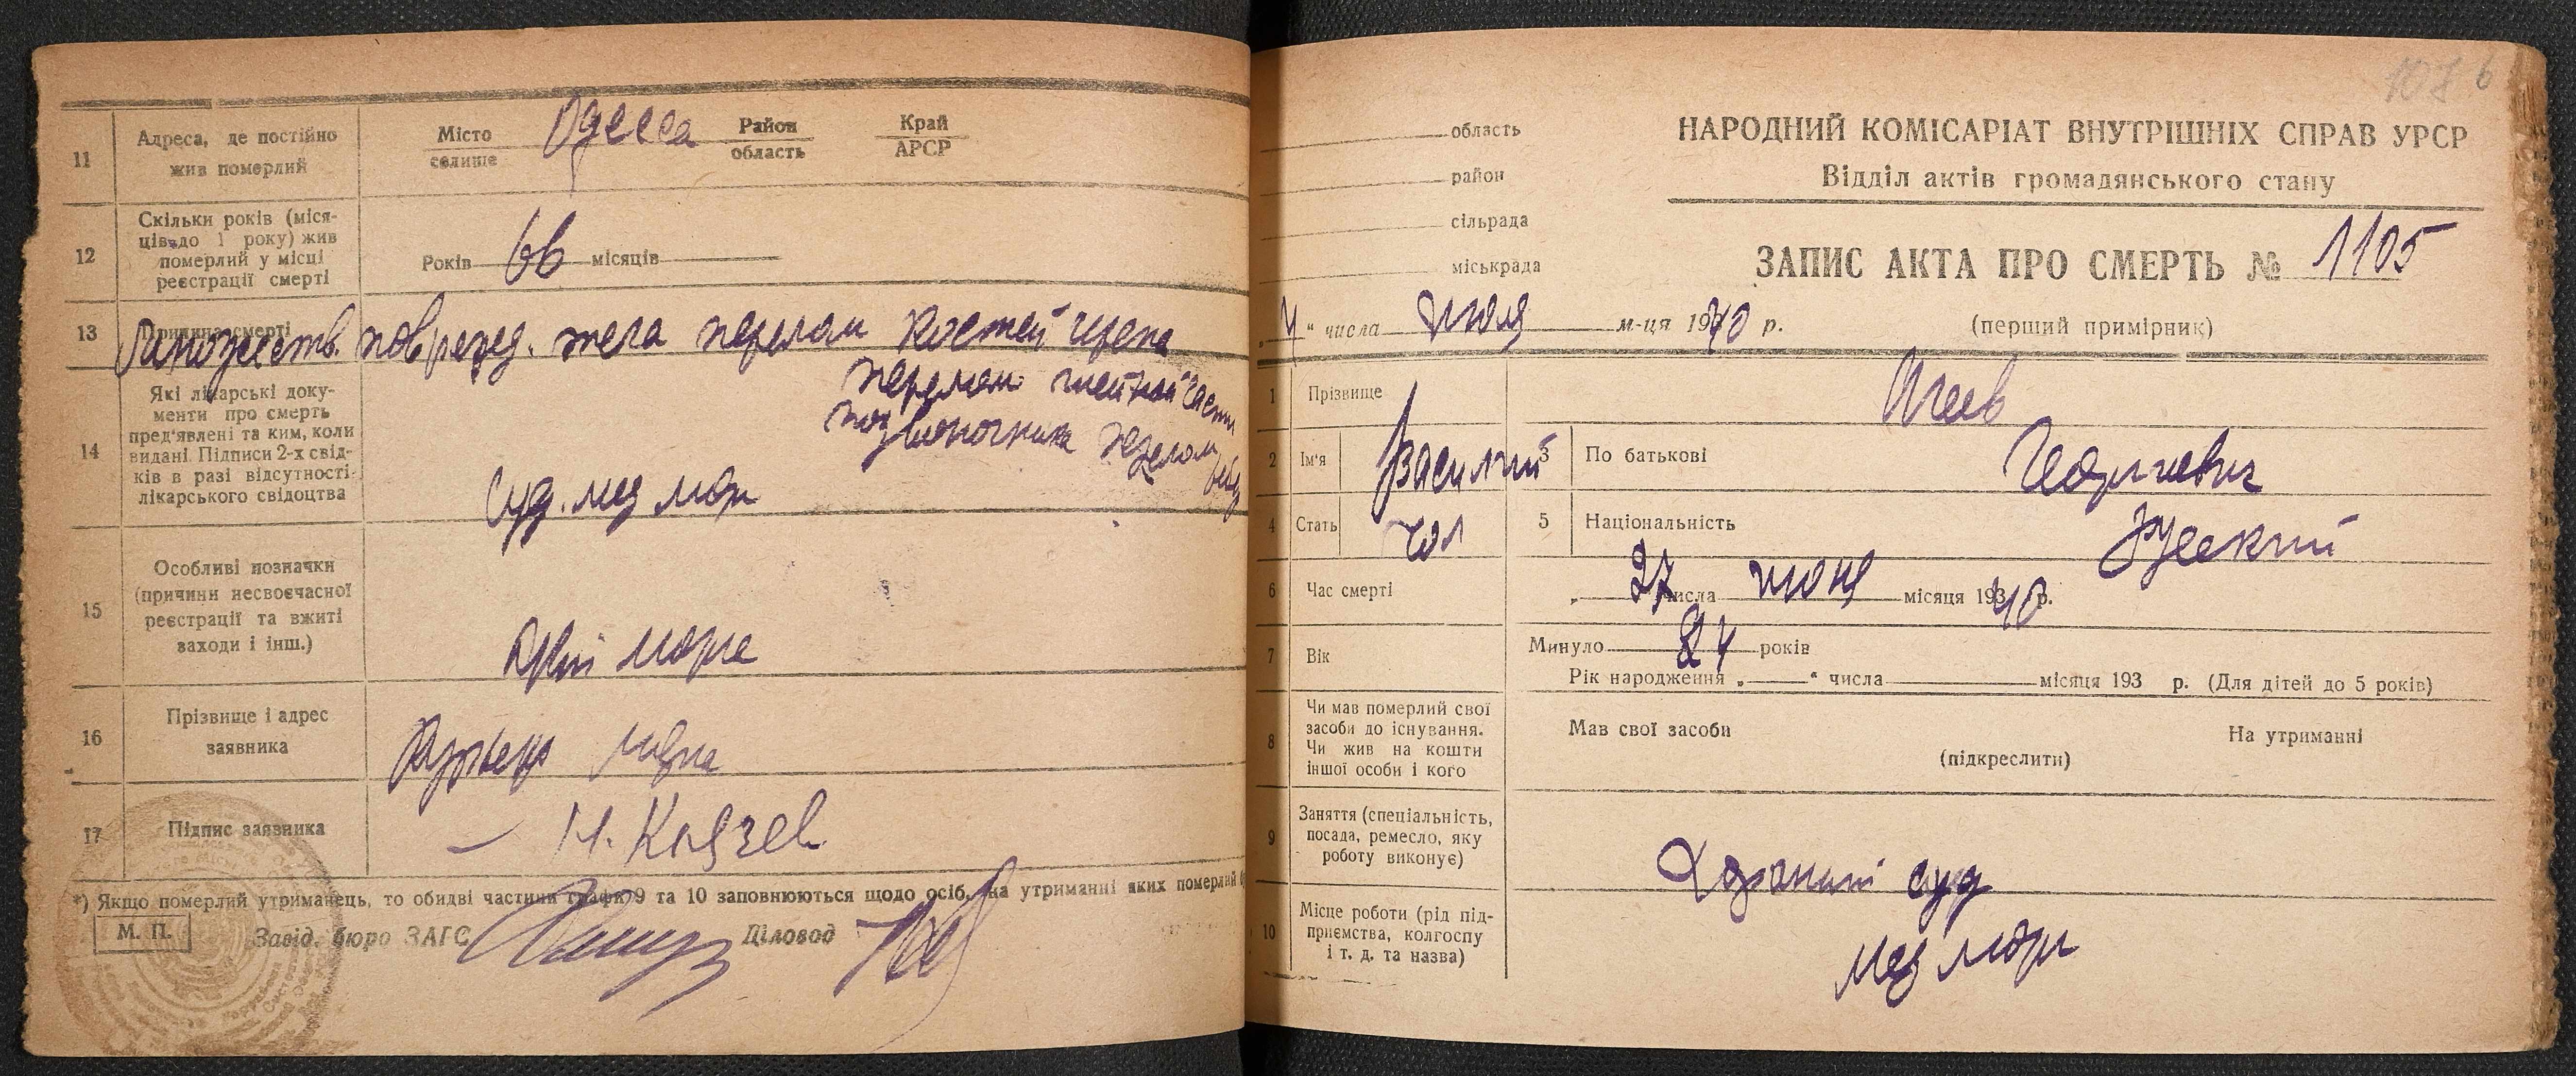 11
Адреса, де постійно
жив померлий
Місто
селище
Одесса
Район
область
Край
АРСР
12
Скільки років (міся-
ців до 1 року) жив
померлий у місці
реєстрації смерті
Років 66 місяців
13
Причина смерті
Множеств. поврежд. тела перелом костей черепа
перелом шейной части
позвоночника перелом
14
Які лікарські доку-
менти про смерть
пред'явлені та ким, коли
видані. Підписи 2-х свід-
ків в разі відсутності
лікарського свідоцтва
Суд. мед морг
15
Особливі позначки
(причини несвоєчасної
реєстрації та вжиті
заходи і інш.)
морга
16
Прізвище і адрес
заявника
морга
17
Підпис заявника
*) Якщо померлий утриманець, то обидві частини графи 9 та 10 заповнюються щодо осіб, на утриманні яких померлий
М. П.
Завід. бюро ЗАГС
Діловод
107 6
область
район
сільрада
міськрада
НАРОДНИЙ КОМІСАРІАТ ВНУТРІШНІХ СПРАВ УРСР
Відділ актів громадянського стану
ЗАПИС АКТА ПРО СМЕРТЬ № 1105
„4" числа июля м-ця 1940 р.
(перший примірник)
1
Прізвище
2
Ім'я
Василий
3
По батькові
Георгиевич
4
Стать
чол
5
Національність
Русский
6
Час смерті
„27 числа июня місяця 1940 р.
7
Вік
Минуло 84 років
Рік народження „ " числа місяця 193 р. (Для дітей до 5 років)
8
Чи мав померлий свої
засоби до існування.
Чи жив на кошти
іншої особи і кого
Мав свої засоби
(підкреслити)
На утриманні
9
Заняття (спеціальність,
посада, ремесло, яку
роботу виконує)
суд
10
Місце роботи (рід під-
приємства, колгоспу
і т. д. та назва)
мед морг